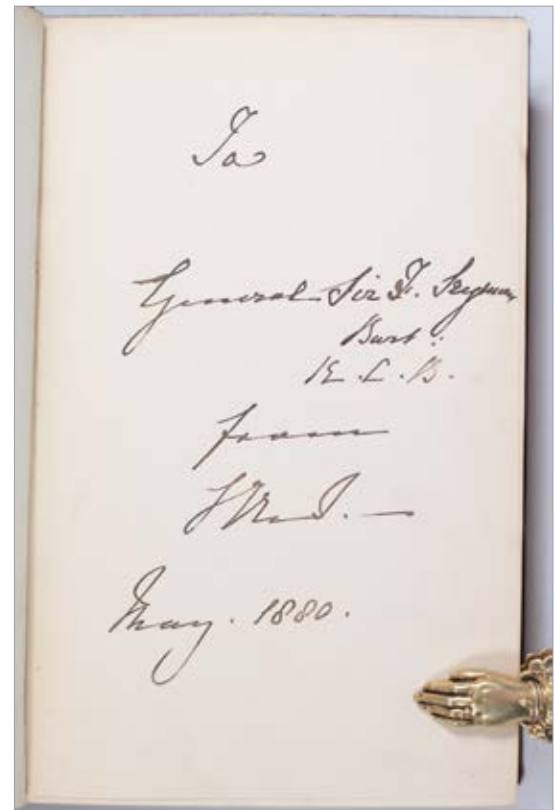 To
General Sir F. Seymour
Bart:
K. C. B.
from
May. 1880.